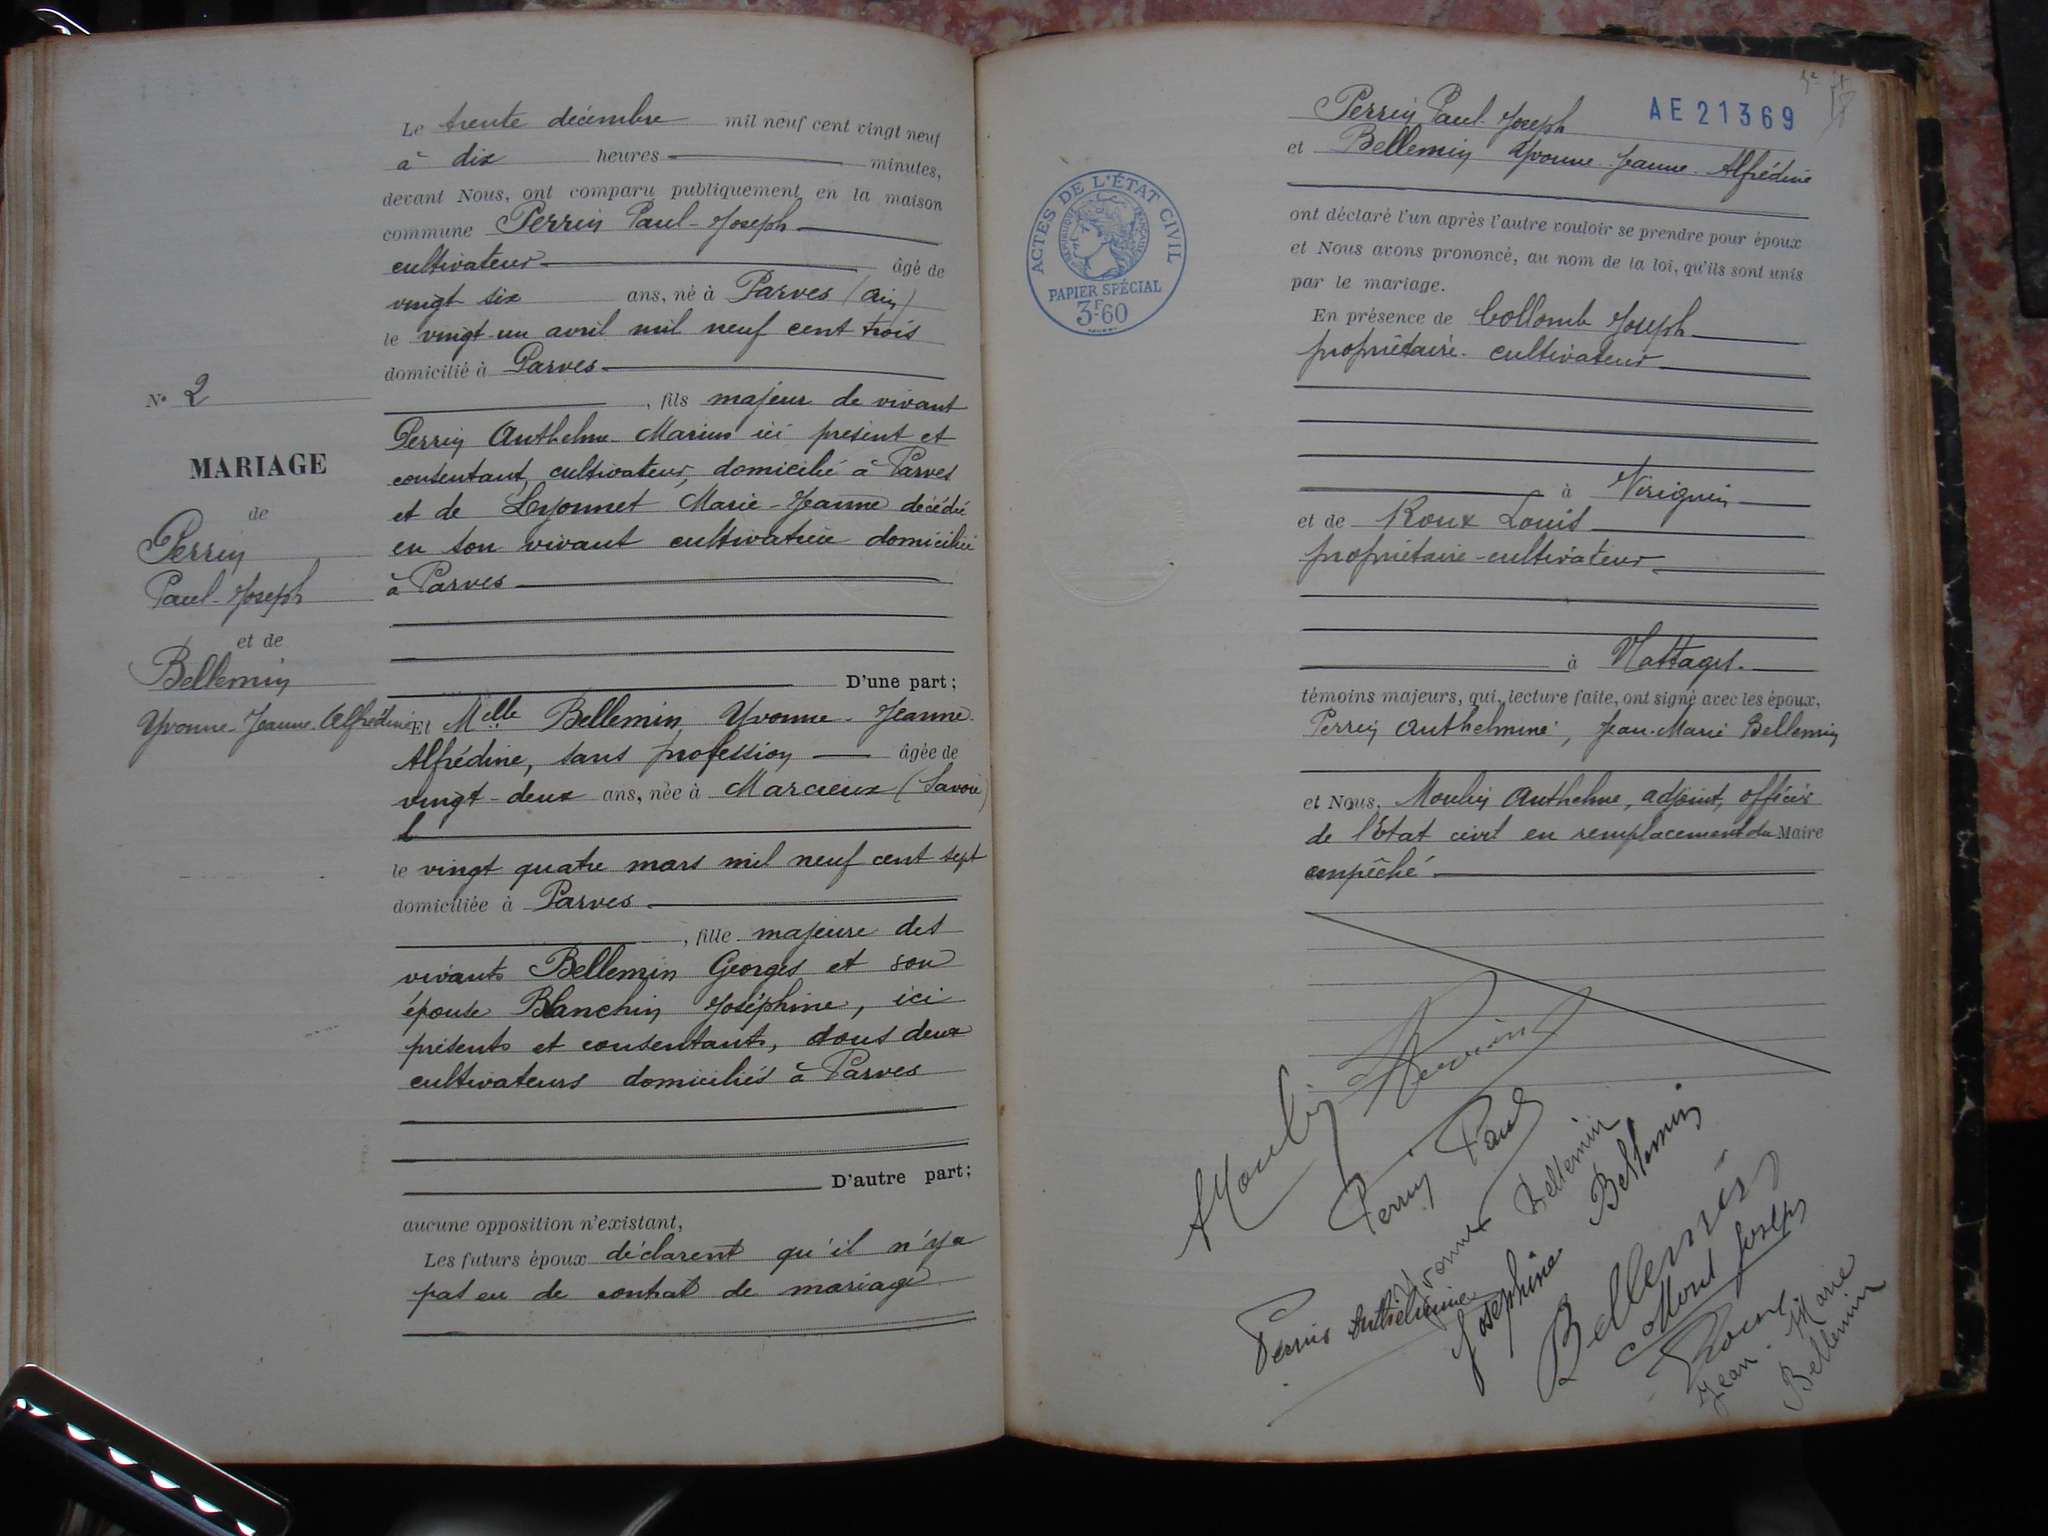 Nº 2
MARIAGE
de
Perrin
Paul-Joseph
et de
Bellemin
Yvonne-Jeanne-Alfrédine
Le trente décembre mil neuf cent vingt neuf
à dix heures minutes,
devant Nous, ont comparu publiquement en la maison
commune Perrin Paul-Joseph
cultivateur âgé de
vingt six ans, né à Parves (Ain)
le vingt-un avril mil neuf cent trois
domicilié à Parves
, fils majeur de vivant
Perrin Anthelme-Marius ici présent et
consentant, cultivateur, domicilié à Parves
et de Lyonnet Marie-Jeanne décédée
en son vivant cultivatrice domiciliée
à Parves
D'une part;
Et Melle Bellemin Yvonne-Jeanne-
Alfrédine, sans profession âgée de
vingt-deux ans, née à Marcieux (Savoie)
le vingt quatre mars mil neuf cent sept
domiciliée à Parves
, fille majeure des
vivants Bellemin Georges et son
épouse Blanchin Joséphine, ici
présents et consentants, tous deux
cultivateurs domiciliés à Parves
D'autre part;
aucune opposition n'existant,
Les futurs époux déclarent qu'il n'y a
pas eu de contrat de mariage
AE 21369
Perrin Paul-Joseph
et Bellemin Yvonne-Jeanne-Alfrédine
ont déclaré l'un après l'autre vouloir se prendre pour époux
et Nous avons prononcé, au nom de la loi, qu'ils sont unis
par le mariage.
En présence de Collomb Joseph
propriétaire-cultivateur
à Virignin
et de Roux Louis
propriétaire-cultivateur
à Nattages
témoins majeurs, qui, lecture faite, ont signé avec les époux,
Perrin Anthelmine, Jean-Marie Bellemin
et Nous, Moulin Anthelme, adjoint, officier
de l'Etat civil en remplacement du Maire
empêché
ACTES DE L'ÉTAT CIVIL
RÉPUBLIQUE FRANÇAISE
PAPIER SPÉCIAL
3F60
AMoulin
Perrin
Perrin Paul
Yvonne Bellemin
Perrin Anthelmine
Joséphine Bellemin
Bellemin
Joseph
Roux
Jean-Marie
Bellemin